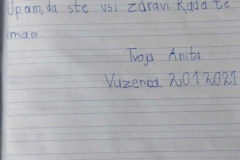 Upam, da ste vsi zdravi. Rada te
imam
Tvoja Anita
Vuzenca, 20.1.2021